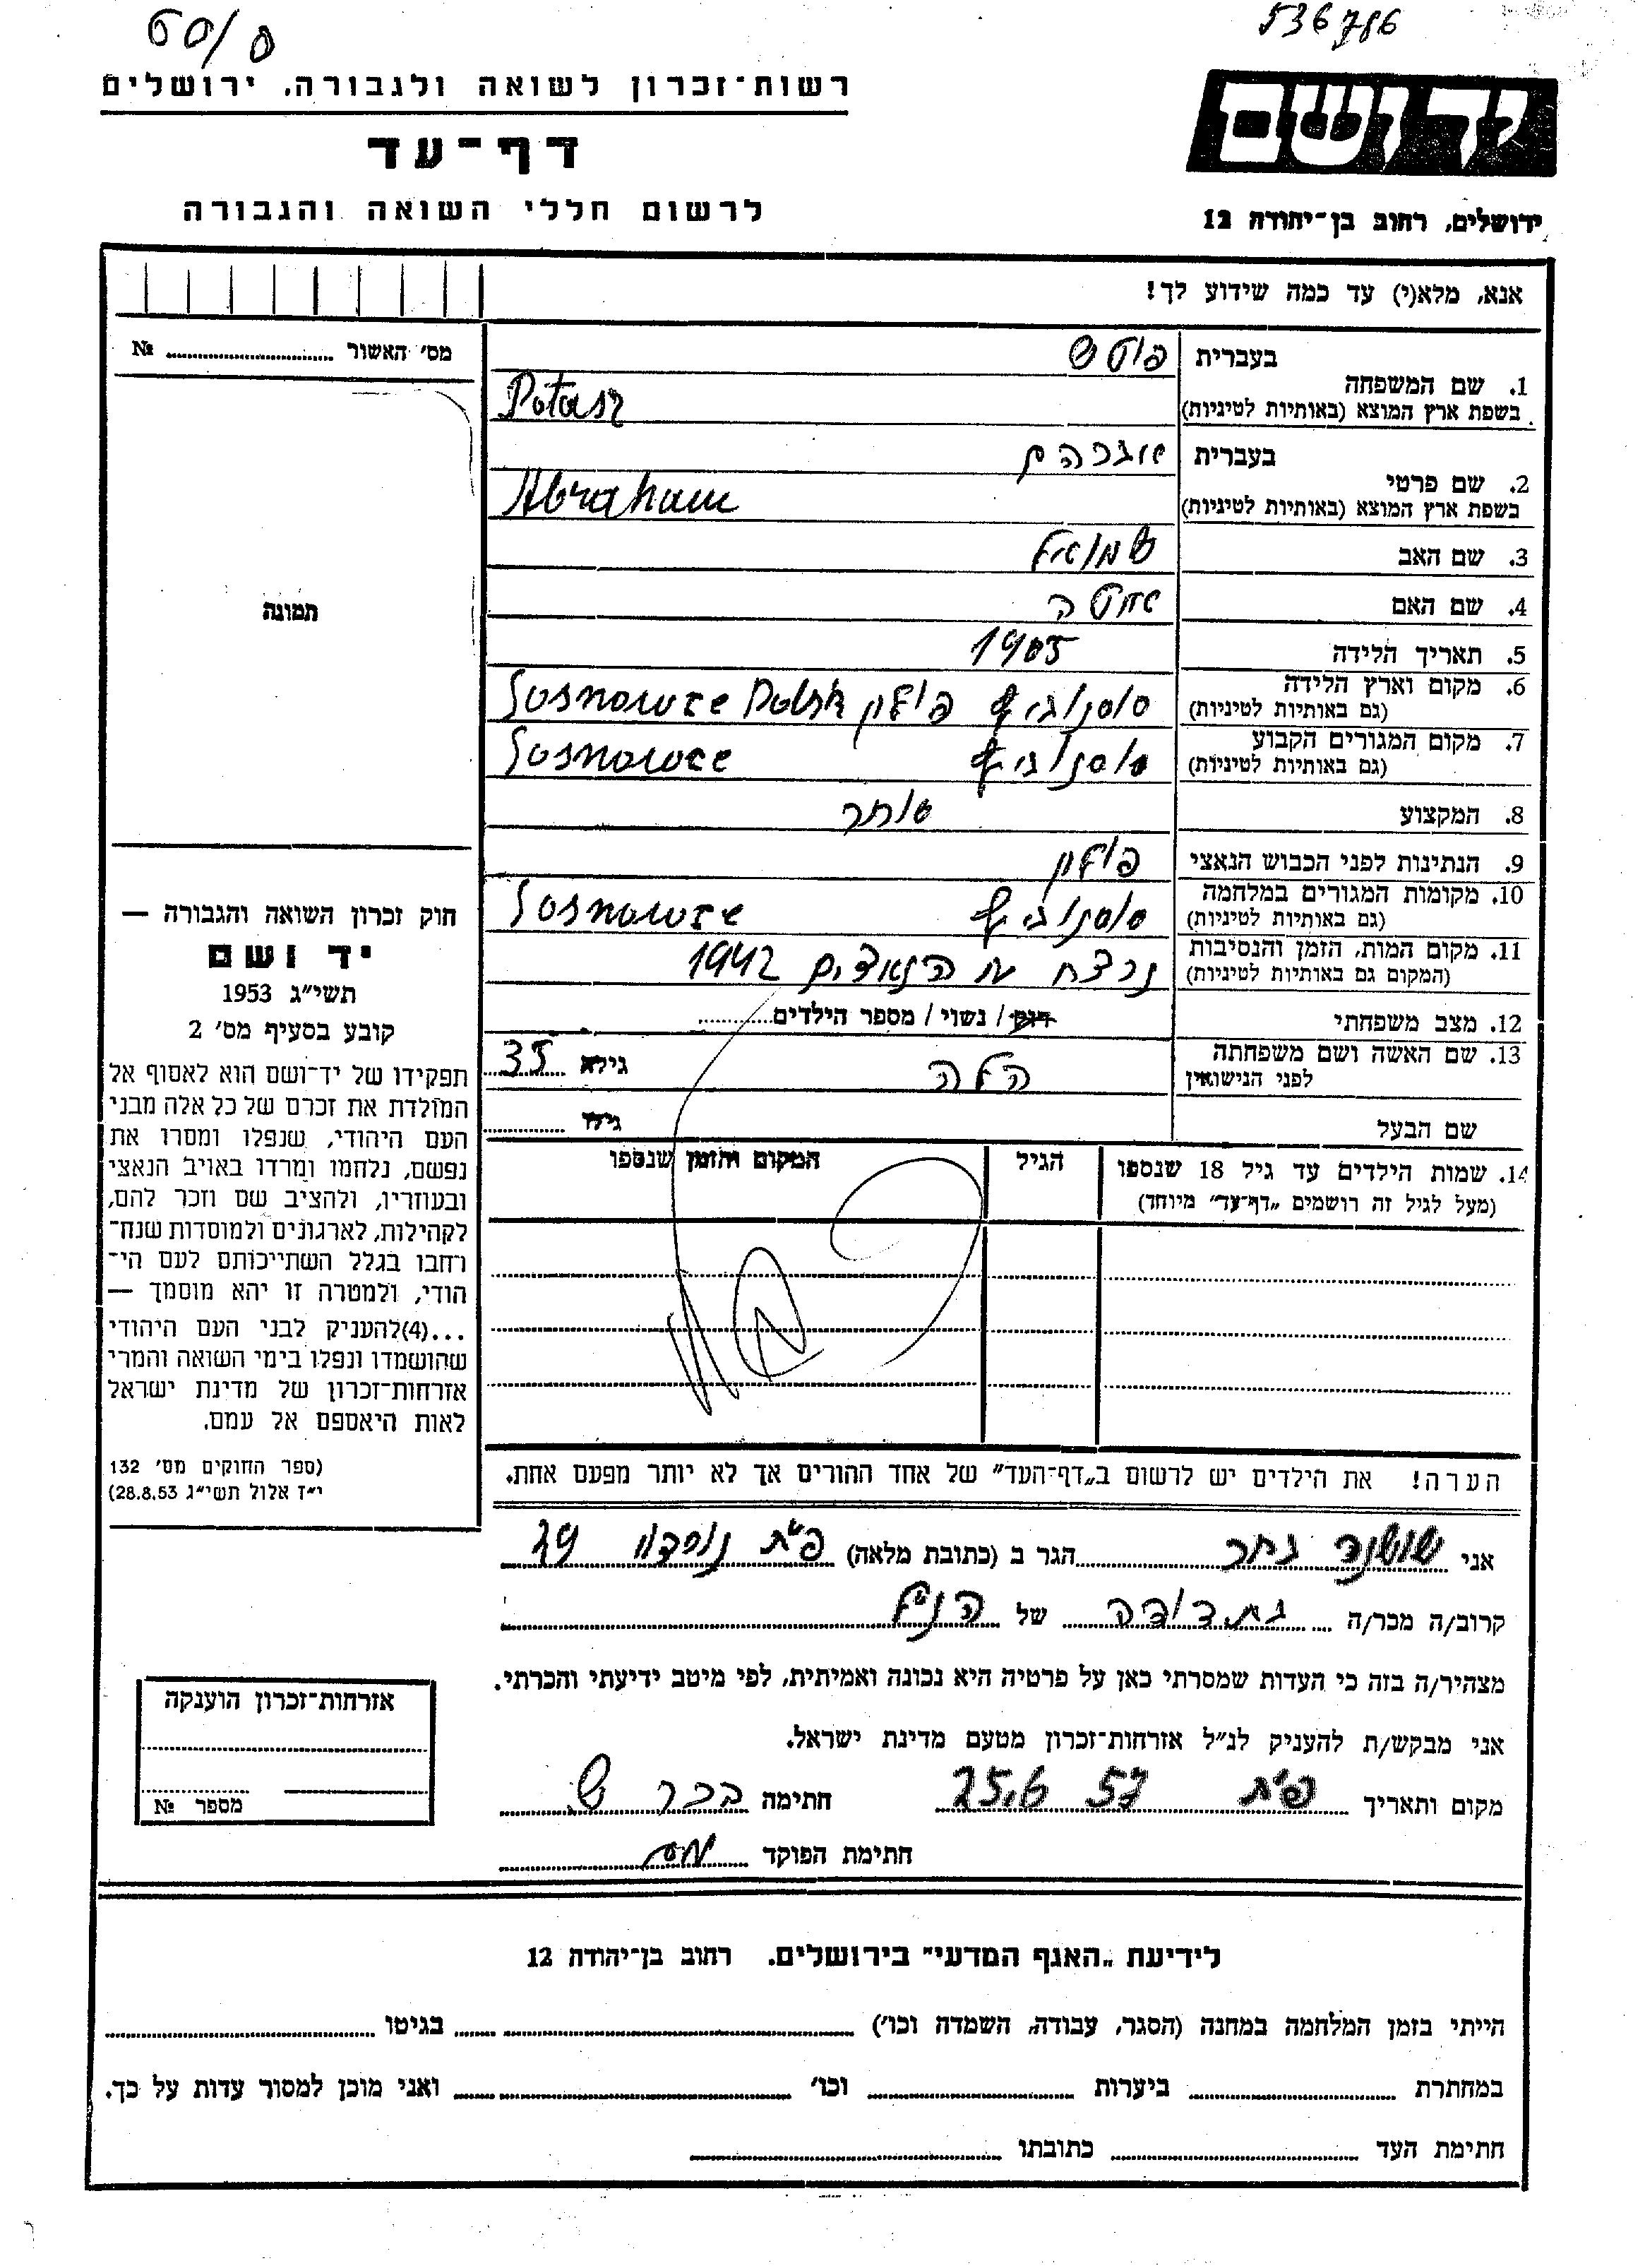 536786
60/0
יד ושם
רשות־זכרון לשואה ולגבורה, ירושלים
דף־עד
לרשום חללי השואה והגבורה
ירושלים, רחוב בן־יהודה 12
אנא, מלא(י) עד כמה שידוע לך!
מס׳ האשור ........ №
תמונה
1. שם המשפחה
בעברית פוטש
בשפת ארץ המוצא (באותיות לטיניות) Potasz
2. שם פרטי
בעברית אברהם
בשפת ארץ המוצא (באותיות לטיניות) Abraham
3. שם האב שמואל
4. שם האם
5. תאריך הלידה 1905
6. מקום וארץ הלידה
(גם באותיות לטיניות) סוסנוביץ פולין Sosnowce
7. מקום המגורים הקבוע
(גם באותיות לטיניות) סוסנוביץ Sosnowce
8. המקצוע סוחר
9. הנתינות לפני הכבוש הנאצי פולין
10. מקומות המגורים במלחמה
(גם באותיות לטיניות) סוסנוביץ Sosnowce
11. מקום המות, הזמן והנסיבות
(המקום גם באותיות לטיניות) נרצח ע הנאצים 1942
12. מצב משפחתי רווק / נשוי / מספר הילדים........
13. שם האשה ושם משפחתה
לפני הנישואין הלה גילה 35
שם הבעל גילו ........
14. שמות הילדים עד גיל 18 שנספו הגיל המקום והזמן שנספו
(מעל לגיל זה רושמים „דף־עד״ מיוחד)
חוק זכרון השואה והגבורה —
יד ושם
תשי״ג 1953
קובע בסעיף מס׳ 2
תפקידו של יד־ושם הוא לאסוף אל
המולדת את זכרם של כל אלה מבני
העם היהודי, שנפלו ומסרו את
נפשם, נלחמו ומרדו באויב הנאצי
ובעוזריו, ולהציב שם וזכר להם,
לקהילות, לארגונים ולמוסדות שנח־
רחבו בגלל השתייכותם לעם הי־
הודי, ולמטרה זו יהא מוסמך —
...(4)להעניק לבני העם היהודי
שהושמדו ונפלו בימי השואה והמרי
אזרחות־זכרון של מדינת ישראל
לאות היאספם אל עמם.
(ספר החוקים מס׳ 132
י״ז אלול תשי״ג 28.8.53)
הערה! את הילדים יש לרשום ב„דף־העד״ של אחד ההורים אך לא יותר מפעם אחת.
אני שושנה הגר ב (כתובת מלאה) פ״ת
קרוב/ה מכר/ה בת דודה של הנ״ל
מצהיר/ה בזה כי העדות שמסרתי כאן על פרטיה היא נכונה ואמיתית, לפי מיטב ידיעתי והכרתי.
אני מבקש/ת להעניק לנ״ל אזרחות־זכרון מטעם מדינת ישראל.
מקום ותאריך פ״ת 25.6 57 חתימה
חתימת הפוקד
אזרחות־זכרון הוענקה
מספר №
לידיעת „האגף המדעי״ בירושלים. רחוב בן־יהודה 12
הייתי בזמן המלחמה במחנה (הסגר, עבודה, השמדה וכו׳) ........ בגיטו ........
במחתרת ........ ביערות ........ וכו׳ ........ ואני מוכן למסור עדות על כך.
חתימת העד ........ כתובתו ........